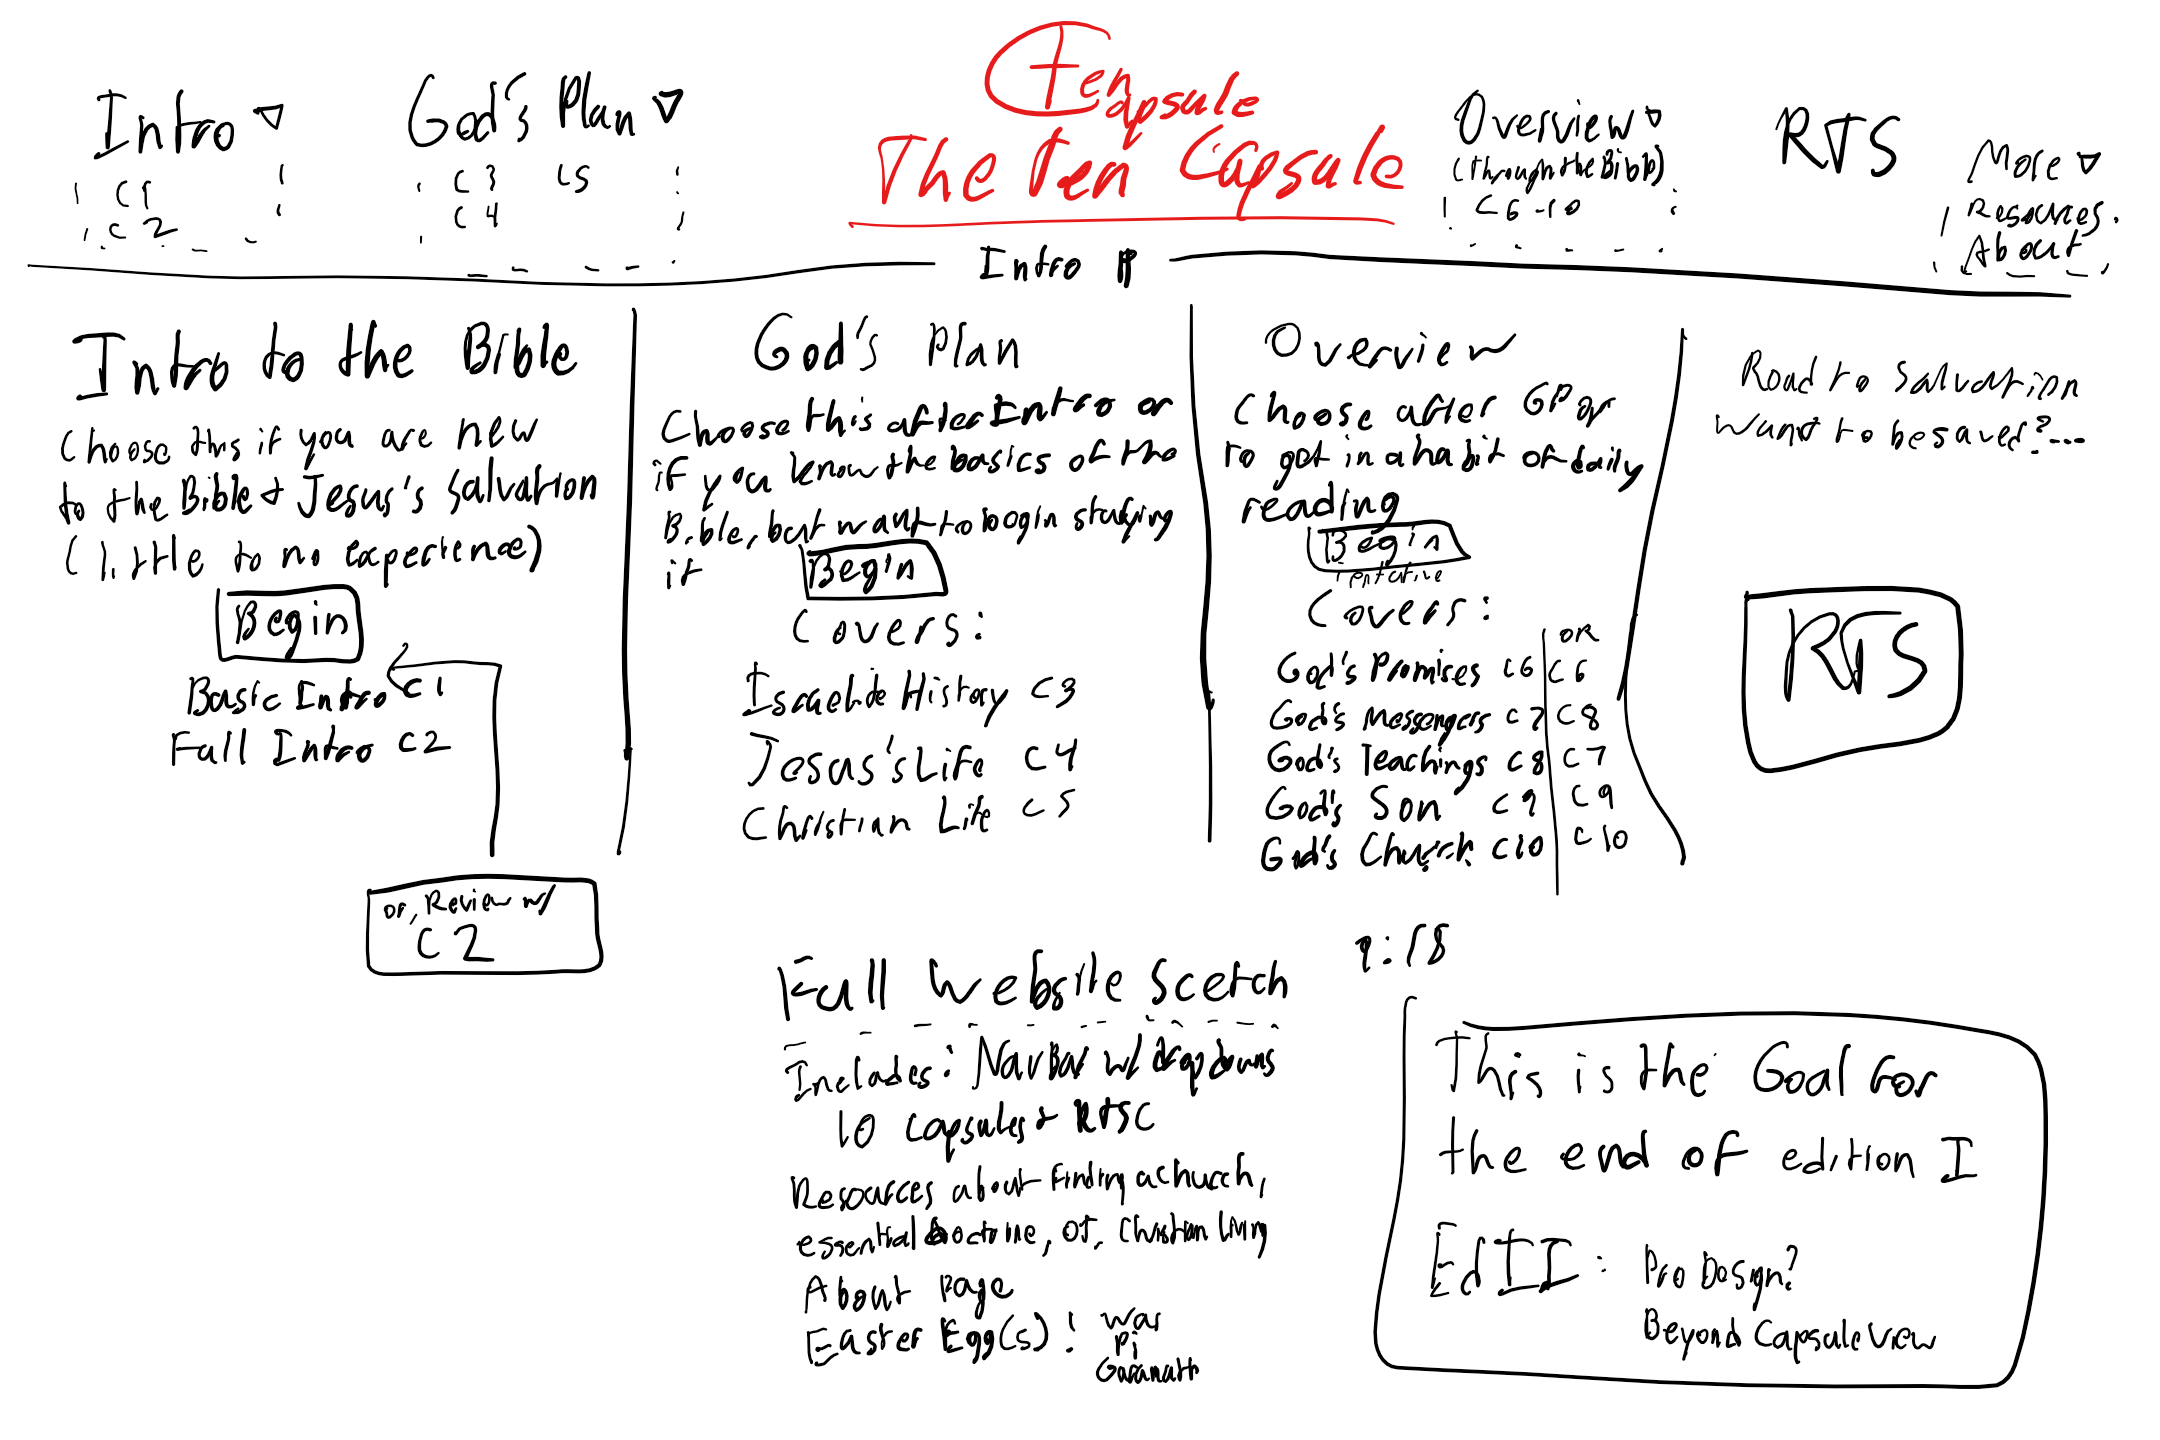 Intro ▽
C1
C2
God's Plan ▽
C3 C5
C4
Tencapsule
The Ten Capsule
Overview ▽
(through the Bible)
C6-10
RTS
More ▽
Resources
About
Intro
Intro to the Bible
Choose this if you are new
to the Bible & Jesus's Salvation
(little to no experience)
Begin
Basic Intro C1
Full Intro C2
or, Review w/
C2
God's Plan
Choose this after Intro or
if you know the basics of the
Bible, but want to begin studying
it
Begin
Covers:
Israelite History C3
Jesus's Life C4
Christian Life C5
Overview
Choose after GP or
to get in a habit of daily
reading
Begin
Tentative
Covers:
OR
God's Promises C6 C6
God's Messengers C7 C8
God's Teachings C8 C7
God's Son C9 C9
God's Church C10 C10
Road to Salvation
Want to be saved?...
RTS
Full Website Scetch
9:18
Includes: NavBar w/ dropdowns
10 Capsules + RTSC
Resources about finding a church,
essential doctrine, OT, Christian living
About Page
Easter Egg(s)! War
Pi
This is the Goal for
the end of edition I
Ed II: Pro Design?
Beyond Capsule View